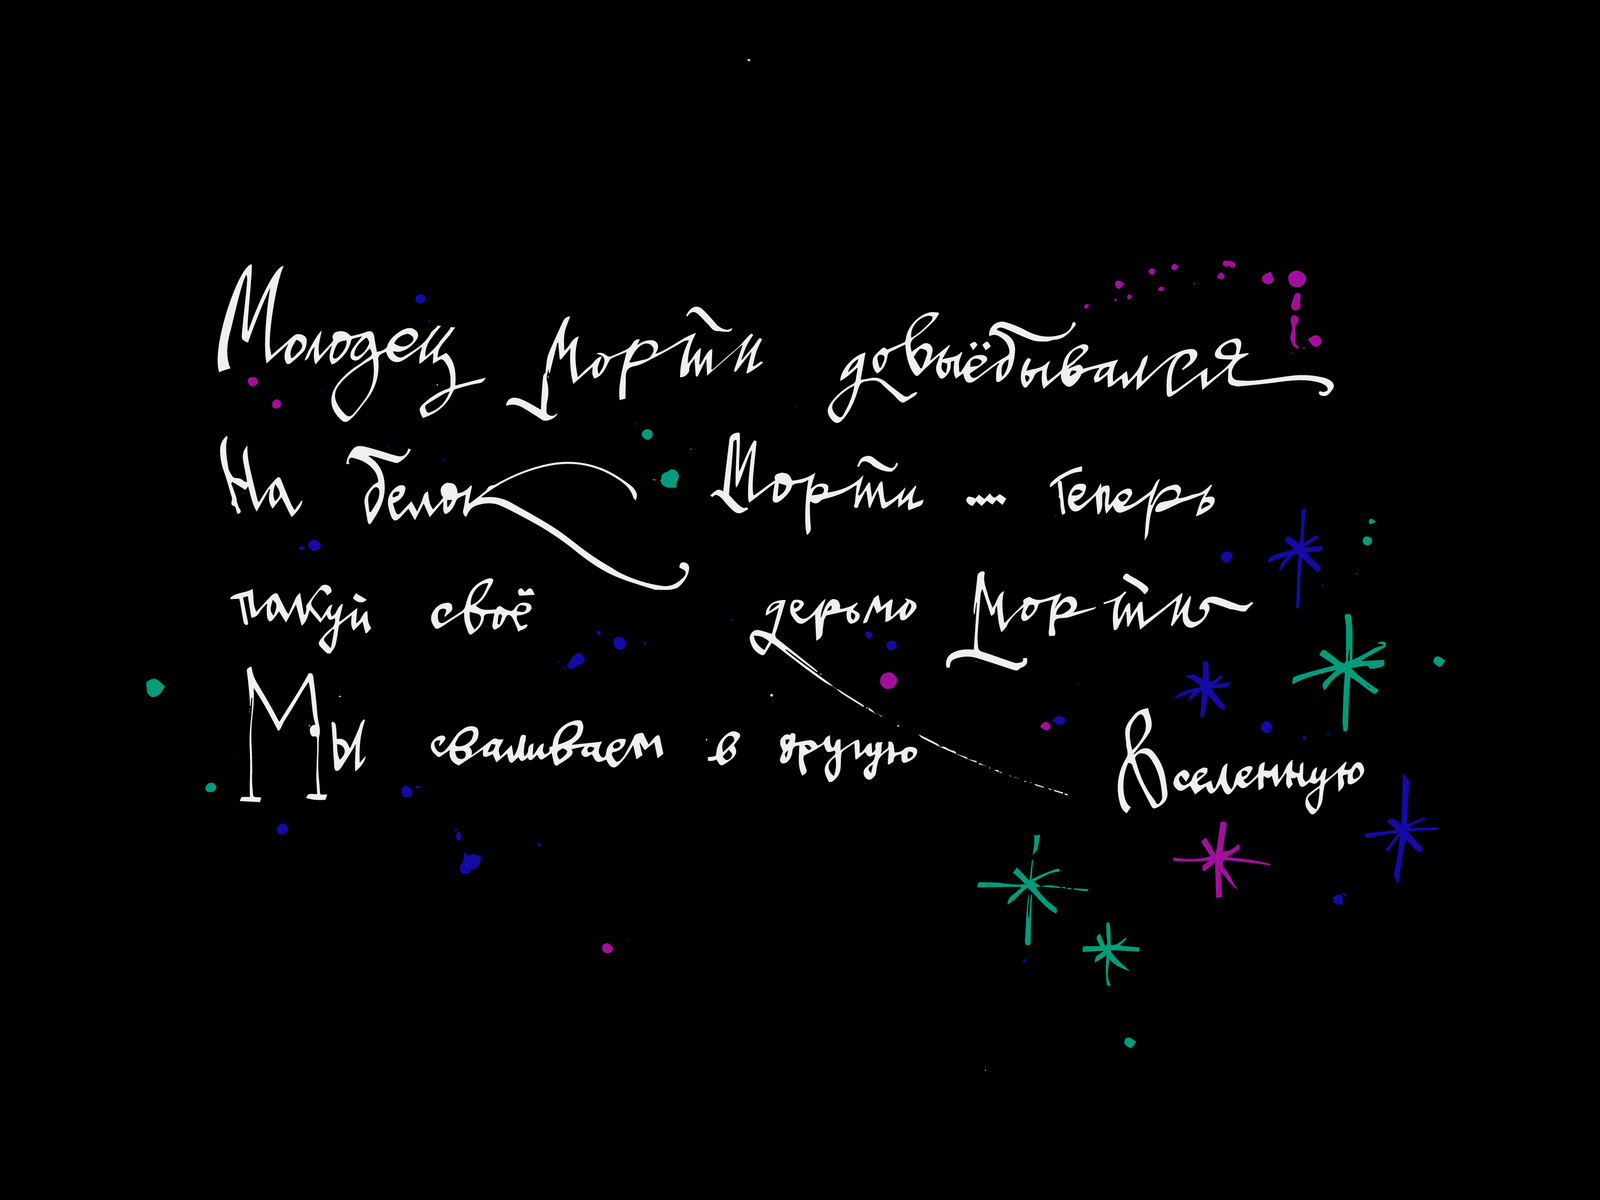 Молодец Морти довыёбывался
На белок Морти .... Теперь
пакуй своё дерьмо Морти
Мы сваливаем в другую Вселенную